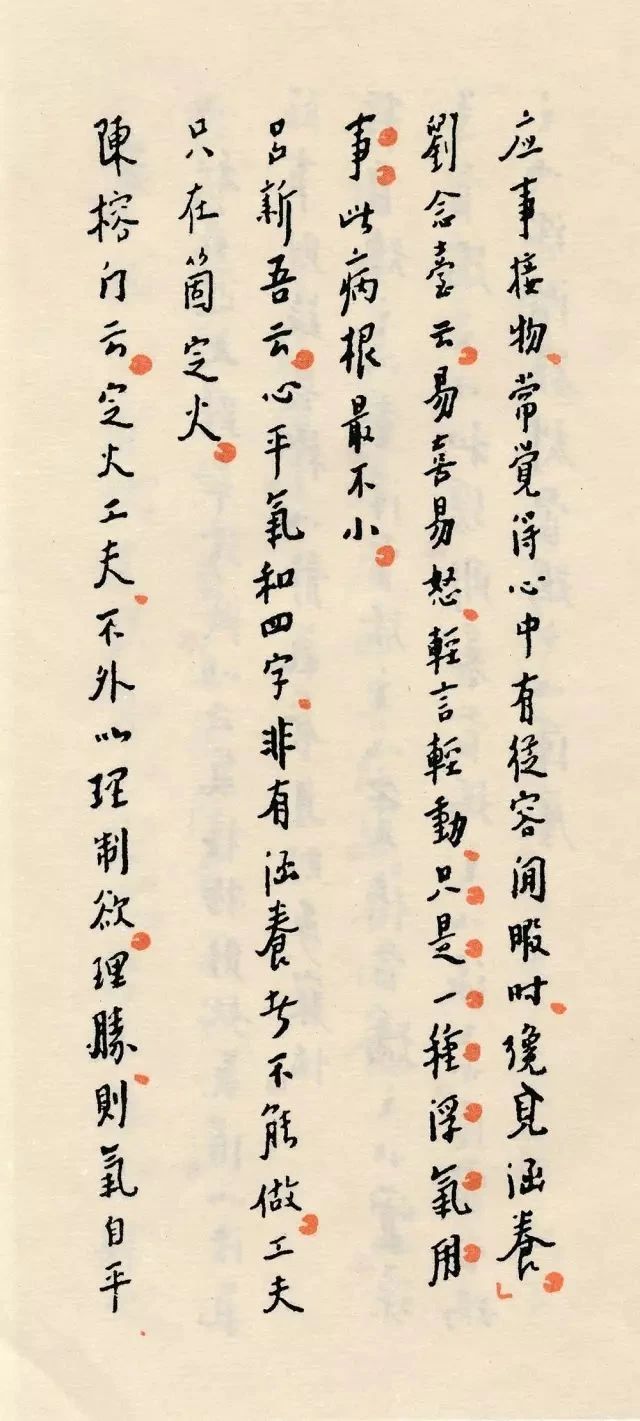 应事接物常觉得心中有從容閒暇时纔見涵養
劉念臺云易喜易怒輕言輕動只是一種浮氣用
事此病根最不小
呂新吾云心平氣和四字非有涵養者不能做工夫
只在箇定火
陳榕门云定火工夫不外以理制欲理勝則氣自平